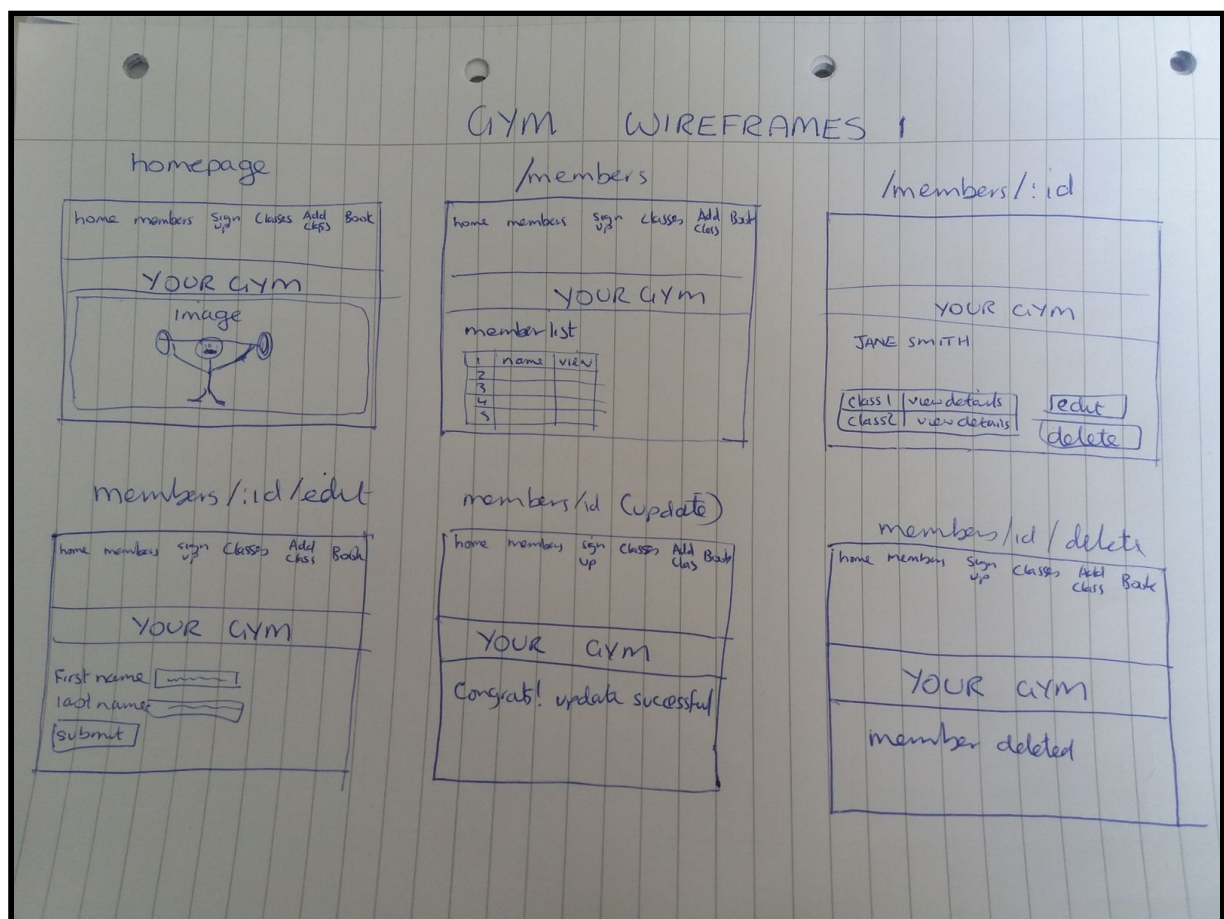 GYM WIREFRAMES 1
homepage
home members Sign up Classes Add Class Book
YOUR GYM
image
/members
home members Sign up Classes Add Class Book
YOUR GYM
member list
1 name view
2
3
4
5
/members/:id
YOUR GYM
JANE SMITH
class 1 view details
class 2 view details
edit
delete
members/:id/edit
home members sign up Classes Add Class Book
YOUR GYM
First name
last name
submit
members/id (update)
home members sign up Classes Add Clas Book
YOUR GYM
Congrats! update sucessful
members/id/delete
home members Sign up Classes Add Class Book
YOUR GYM
member deleted